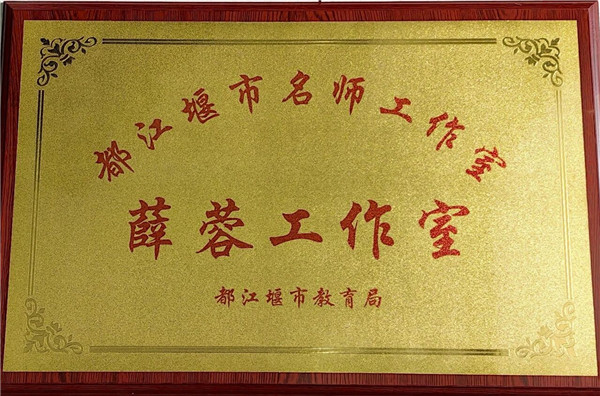 都江堰市名师工作室
薛蓉工作室
都江堰市教育局